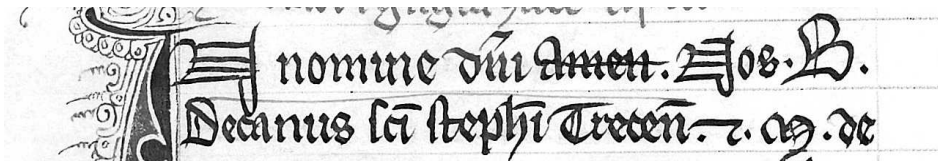 IN nomine dñi amen. Nos. B.
Decanus sc̄i steph̄i Trecen̄. ⁊. M. de